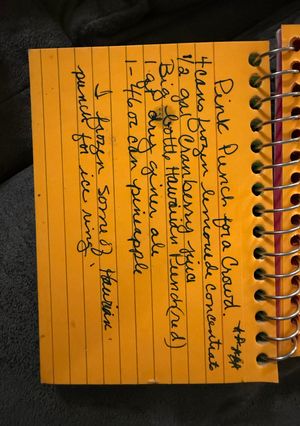 Pink Punch for a Crowd.
4 cans frozen lemonade concentrate
1/2 gal Cranberry juice
Big bottle Hawaiian Punch (red)
1 qt dry ginger ale
1- 46 oz can pineapple
I frozen some of Hawaiian
punch for ice ring.